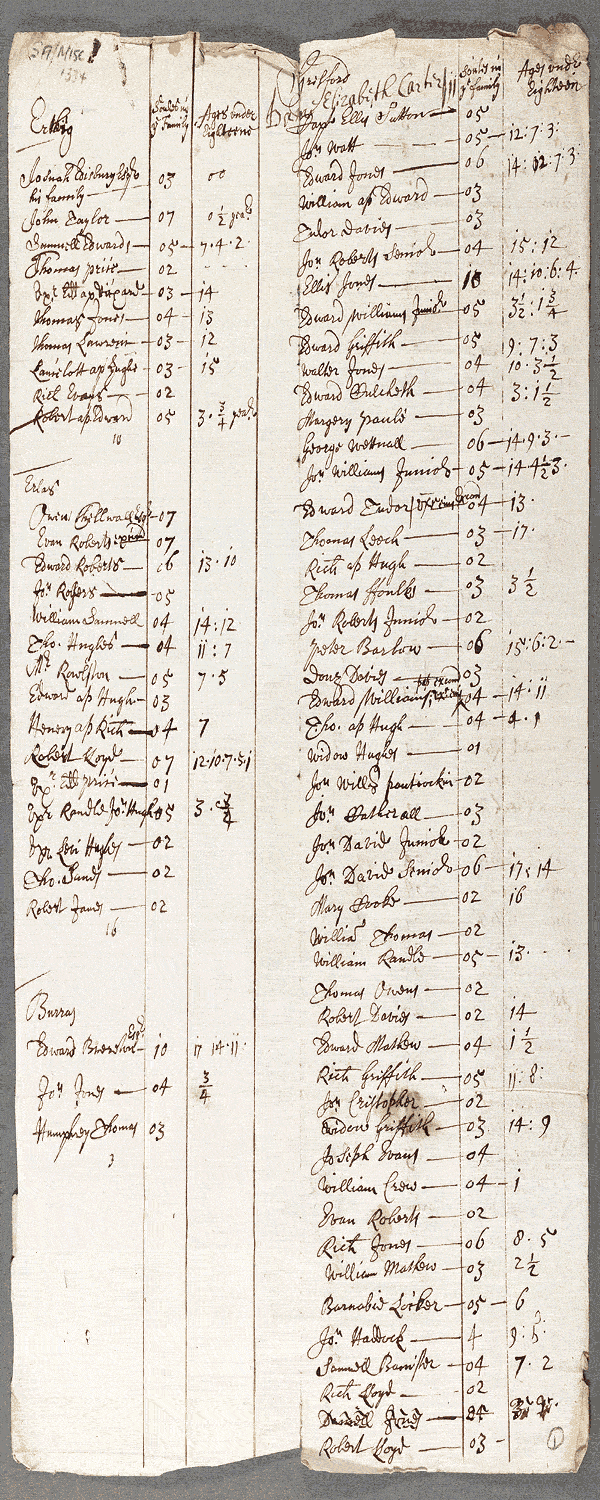 SA/MISC
1334
Erthig
Soules in
ye Family
Ages under
Eighteene
Josuah Edisbury Esqr &
his family — 03 00
John Taylor — 07 0½ yeare
Sammuell Edwards — 05 — 7·4·2·
Thomas price — 02
Exr Eliz ap Richard — 03 — 14
Thomas Jones — 04 — 13
Thomas Lawrence — 03 — 12
Lancelott ap Hughe — 03 — 15
Rich Evans — 02
Robert ap Edward 05 3·¾ yeare
10
Erlas
Owen Thellwall Esqr 07
Evan Roberts 07
Edward Roberts — 06 13·10
Jon Rogers — 05
William Sammuell 04 14:12
Tho. Hughes — 04 11:7
Mr Rowlston — 05 7·5
Edward ap Hugh — 03
Henery ap Rich — 04 7
Robert Lloyd — 07 12·10·7·5·1
Exr Eliz price — 01
Exr Randle Jon Hughes 05 3·¾
Exr Levi Hughes — 02
Tho. Sands — 02
Robert Jones — 02
16
Burras
Edward Brereton Esqr — 10 17 14·11·
Jon Jones — 04 ¾
Humphrey Thomas 03
3
Gresford
Soules in
ye Family
Ages under
Eighteen
Elizabeth Carter 11
Ellis Sutton — 05
Jon Watt — 05 — 12:7:3·
Edward Jones — 06 14:12:7·3·
William ap Edward — 03
Tudor Davies — 03
Jon Roberts Senior — 04 15:12
Ellis Jones — 10 14:10:6:4·
Edward Williams Junior — 05 3½:1¾
Edward Griffith — 05 9:7:3
Walter Jones — 04 10·3½
Edward Sulcheth — 04 3:1½
Margery paule — 03
George Wettnall — 06 — 14·9·3·
Jon Williams Junior — 05 — 14·4½3·
Edward Tudor 04 — 13·
Thomas Leech — 03 — 17·
Rich ap Hugh — 02
Thomas ffoulks — 03 3½
Jon Roberts Junior — 02
Peter Barlow — 06 15:6:2·
Davies — 03
Edward Williams 04 — 14:11
Tho. ap Hugh — 04 — 4·1
Widow Hughes — 01
Jon Will: 02
Jon Catherall — 03
Jon David Junior — 02
Jon David Senior — 06 — 17:14
Mary Cooke — 02 16
William Thomas — 02
William Randle — 05 — 13·
Thomas Owens — 02
Robert Davies — 02 14
Edward Mathew — 04 1½
Rich Griffith — 05 11:8:
Jon Cristopher — 02
Widow Griffith — 03 14:9
Joseph Evans — 04
William Crew — 04 — 1
Evan Roberts — 02
Rich Jones — 06 8·5
William Mathew — 03 2½
Barnabie Locker — 05 — 6
Jon Haddock — 4 9:5·
Samuell Banister — 04 7·2
Rich Lloyd — 02
Jones —
Robert Lloyd — 03 —
1